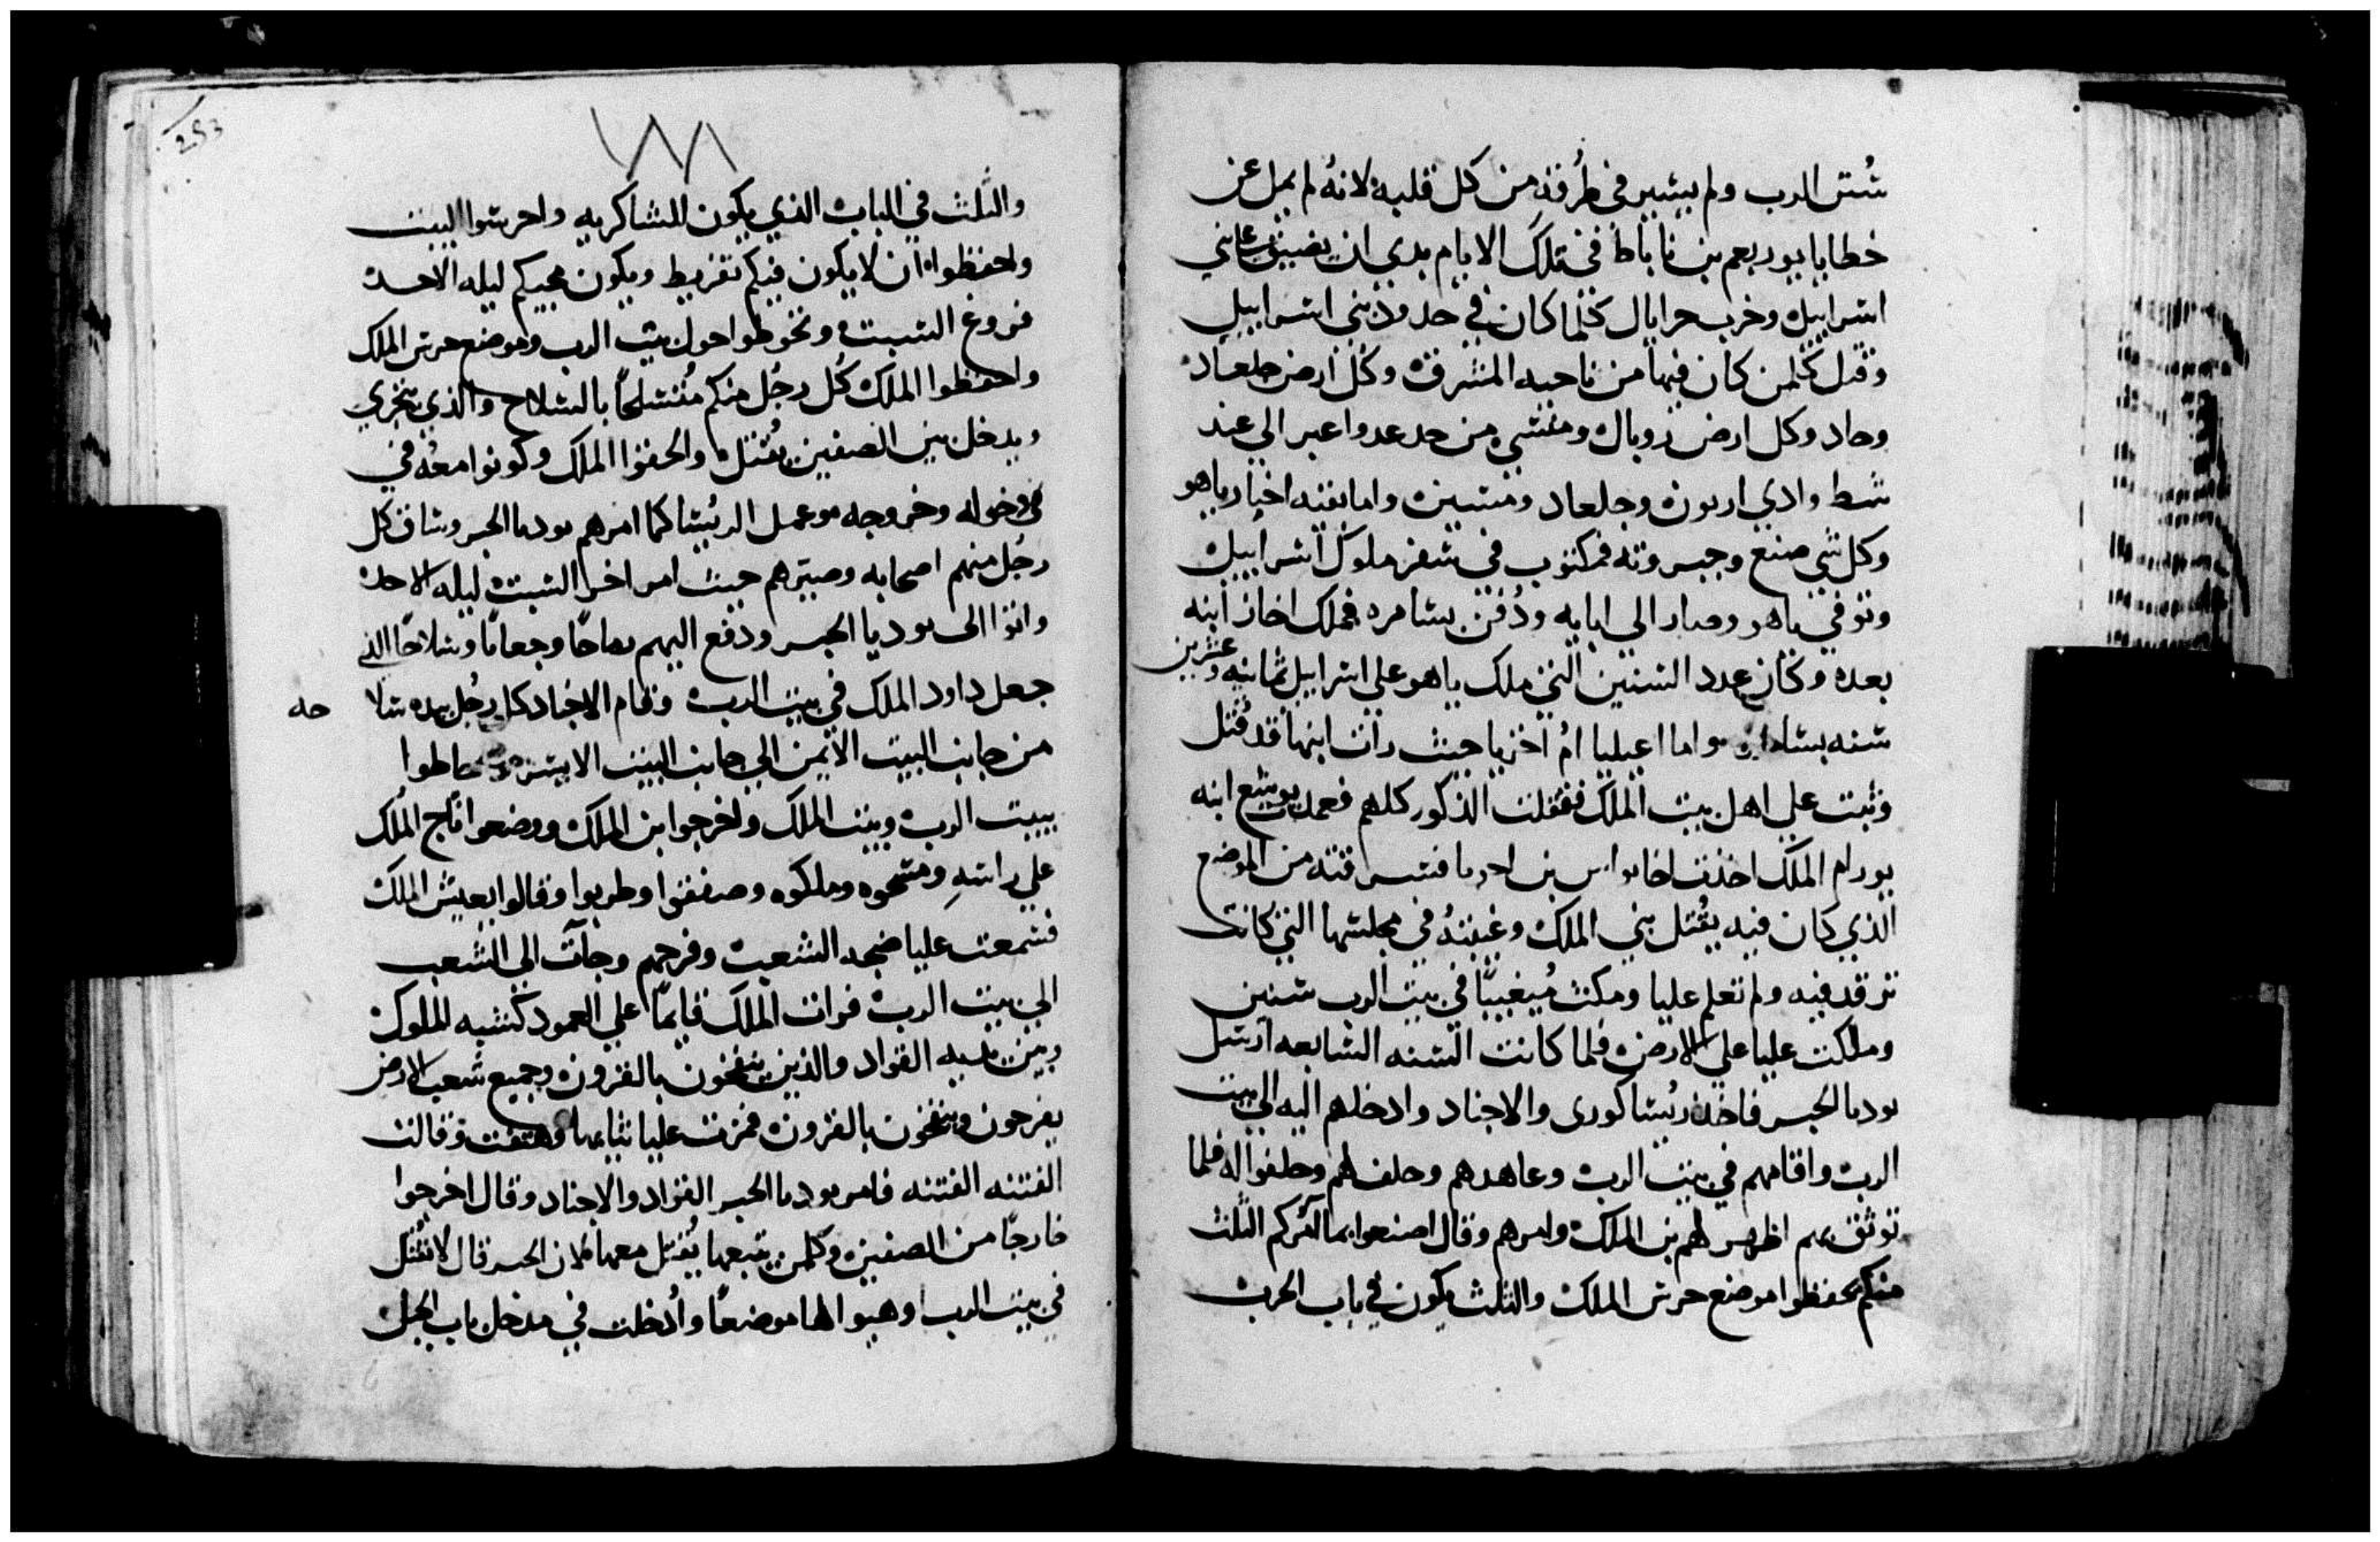 سُنن الرب ولم يسير في طُرقه من كل قلبه لانهُ لم يمل عن
خطايا يوربعم بن ناباط في تلك الايام بدي ان يضيق علي بني
اسراييل وخرب حزايال كلما كان في حدود بني اسراييل
وقتل كلمن كان فيها من ناحيه المشرق وكل ارض جلعاد
وجاد وكل ارض روبال ومنسي من حد عدواعير الي عند
شط وادي اربون وجلعاد ومتنين واما بقيه اخبار ياهو
وكل شي صنع وجبروته فمكتوب في سفر ملوك اسراييل
وتوفي ياهو وصار الي ابايه ودُفن بسامره فملك اخاز ابنه
بعده وكان عدد السنين التي ملك ياهو علي اسراييل ثمانيه وعشرين
سنه بسامره واما اعيليا امُ اخزيا حيث رات ابنها قد قُتل
وثبت علي اهل بيت الملك فقتلت الذكور كلهم فعمدت يوشع ابنه
يورام الملك اخذت بن فسرقته من الموضع
الذي كان فيه يقُتل بني الملك وغيبتهُ في مجلسها التي كانت
ترقد فيه ولم تعلم عليا ومكث مُيغيبًا في بيت الرب سنين
وملكت عليا علي الارض فلما كانت السنه السابعه ارسل
يوديا الحبر فاخذ روسا كورى والاجناد وادخلهم اليه الي بيت
الرب واقامهم في بيت الرب وعاهدهم وحلف لهم وحلفوا له فلما
توثق بهم اظهر لهم بن الملك وامرهم وقال اصنعوا بما آمركم الثلث
منكم يحفظوا موضع حرس الملك والثلث يكون في باب الحرب
253
والثلث في الباب الذي يكون للشاكريه واحرسوا البيت
واحفظوا ان لا يكون فيكم تفريط ويكون مجيكم ليله الاحد
فروغ السبت وتحوطوا حول بيت الرب وموضع حرس الملك
واحفظوا الملك كُل رجُل منكم مُتسلحًا بالسلاح والذي يتجري
ويدخل بين الصفين يُقتل والحفوا الملك وكونوا معهُ في
في دخوله وخروجه فعمل الرئسا كما امرهم يوديا الحبر وساق كل
رجُل منهم اصحابه وصيرهم حيث امر اخر السبت ليله الاحد
واتوا الي يوديا الحبر ودفع اليهم رماحًا وجعابًا وسلاحًا الذي
جعل داود الملك في بيت الرب وقام الاجناد كل رجُل بيده سلا حه
من جانب البيت الايمن الي جانب البيت الايسر واحاطوا
ببيت الرب وبيت الملك واخرجوا بن الملك ووضعوا تاج الملك
علي راسهِ ومسحوه وملكوه وصفقوا وطربوا وقالوا يعيش الملك
فسمعت عليا ضجه الشعب وفرحهم وجآت الي الشعب
الي بيت الرب فرات الملك قايمًا علي العمود كسنه الملوك
وبين يديه القواد والذين ينفخون بالقرون وجميع شعب الارض
يفرحون وينفخون بالقرون فمزقت عليا ثيابها وهتفت وقالت
الفتنه الفتنه فامر يوديا الحبر القواد والاجناد وقال اخرجوا
خارجًا من الصفين وكلمن يتبعها يُقتل معها لان الحبر قال لا تُقتل
في بيت الرب وهيوا لها موضعًا وأدخلت في مدخل باب الخيل